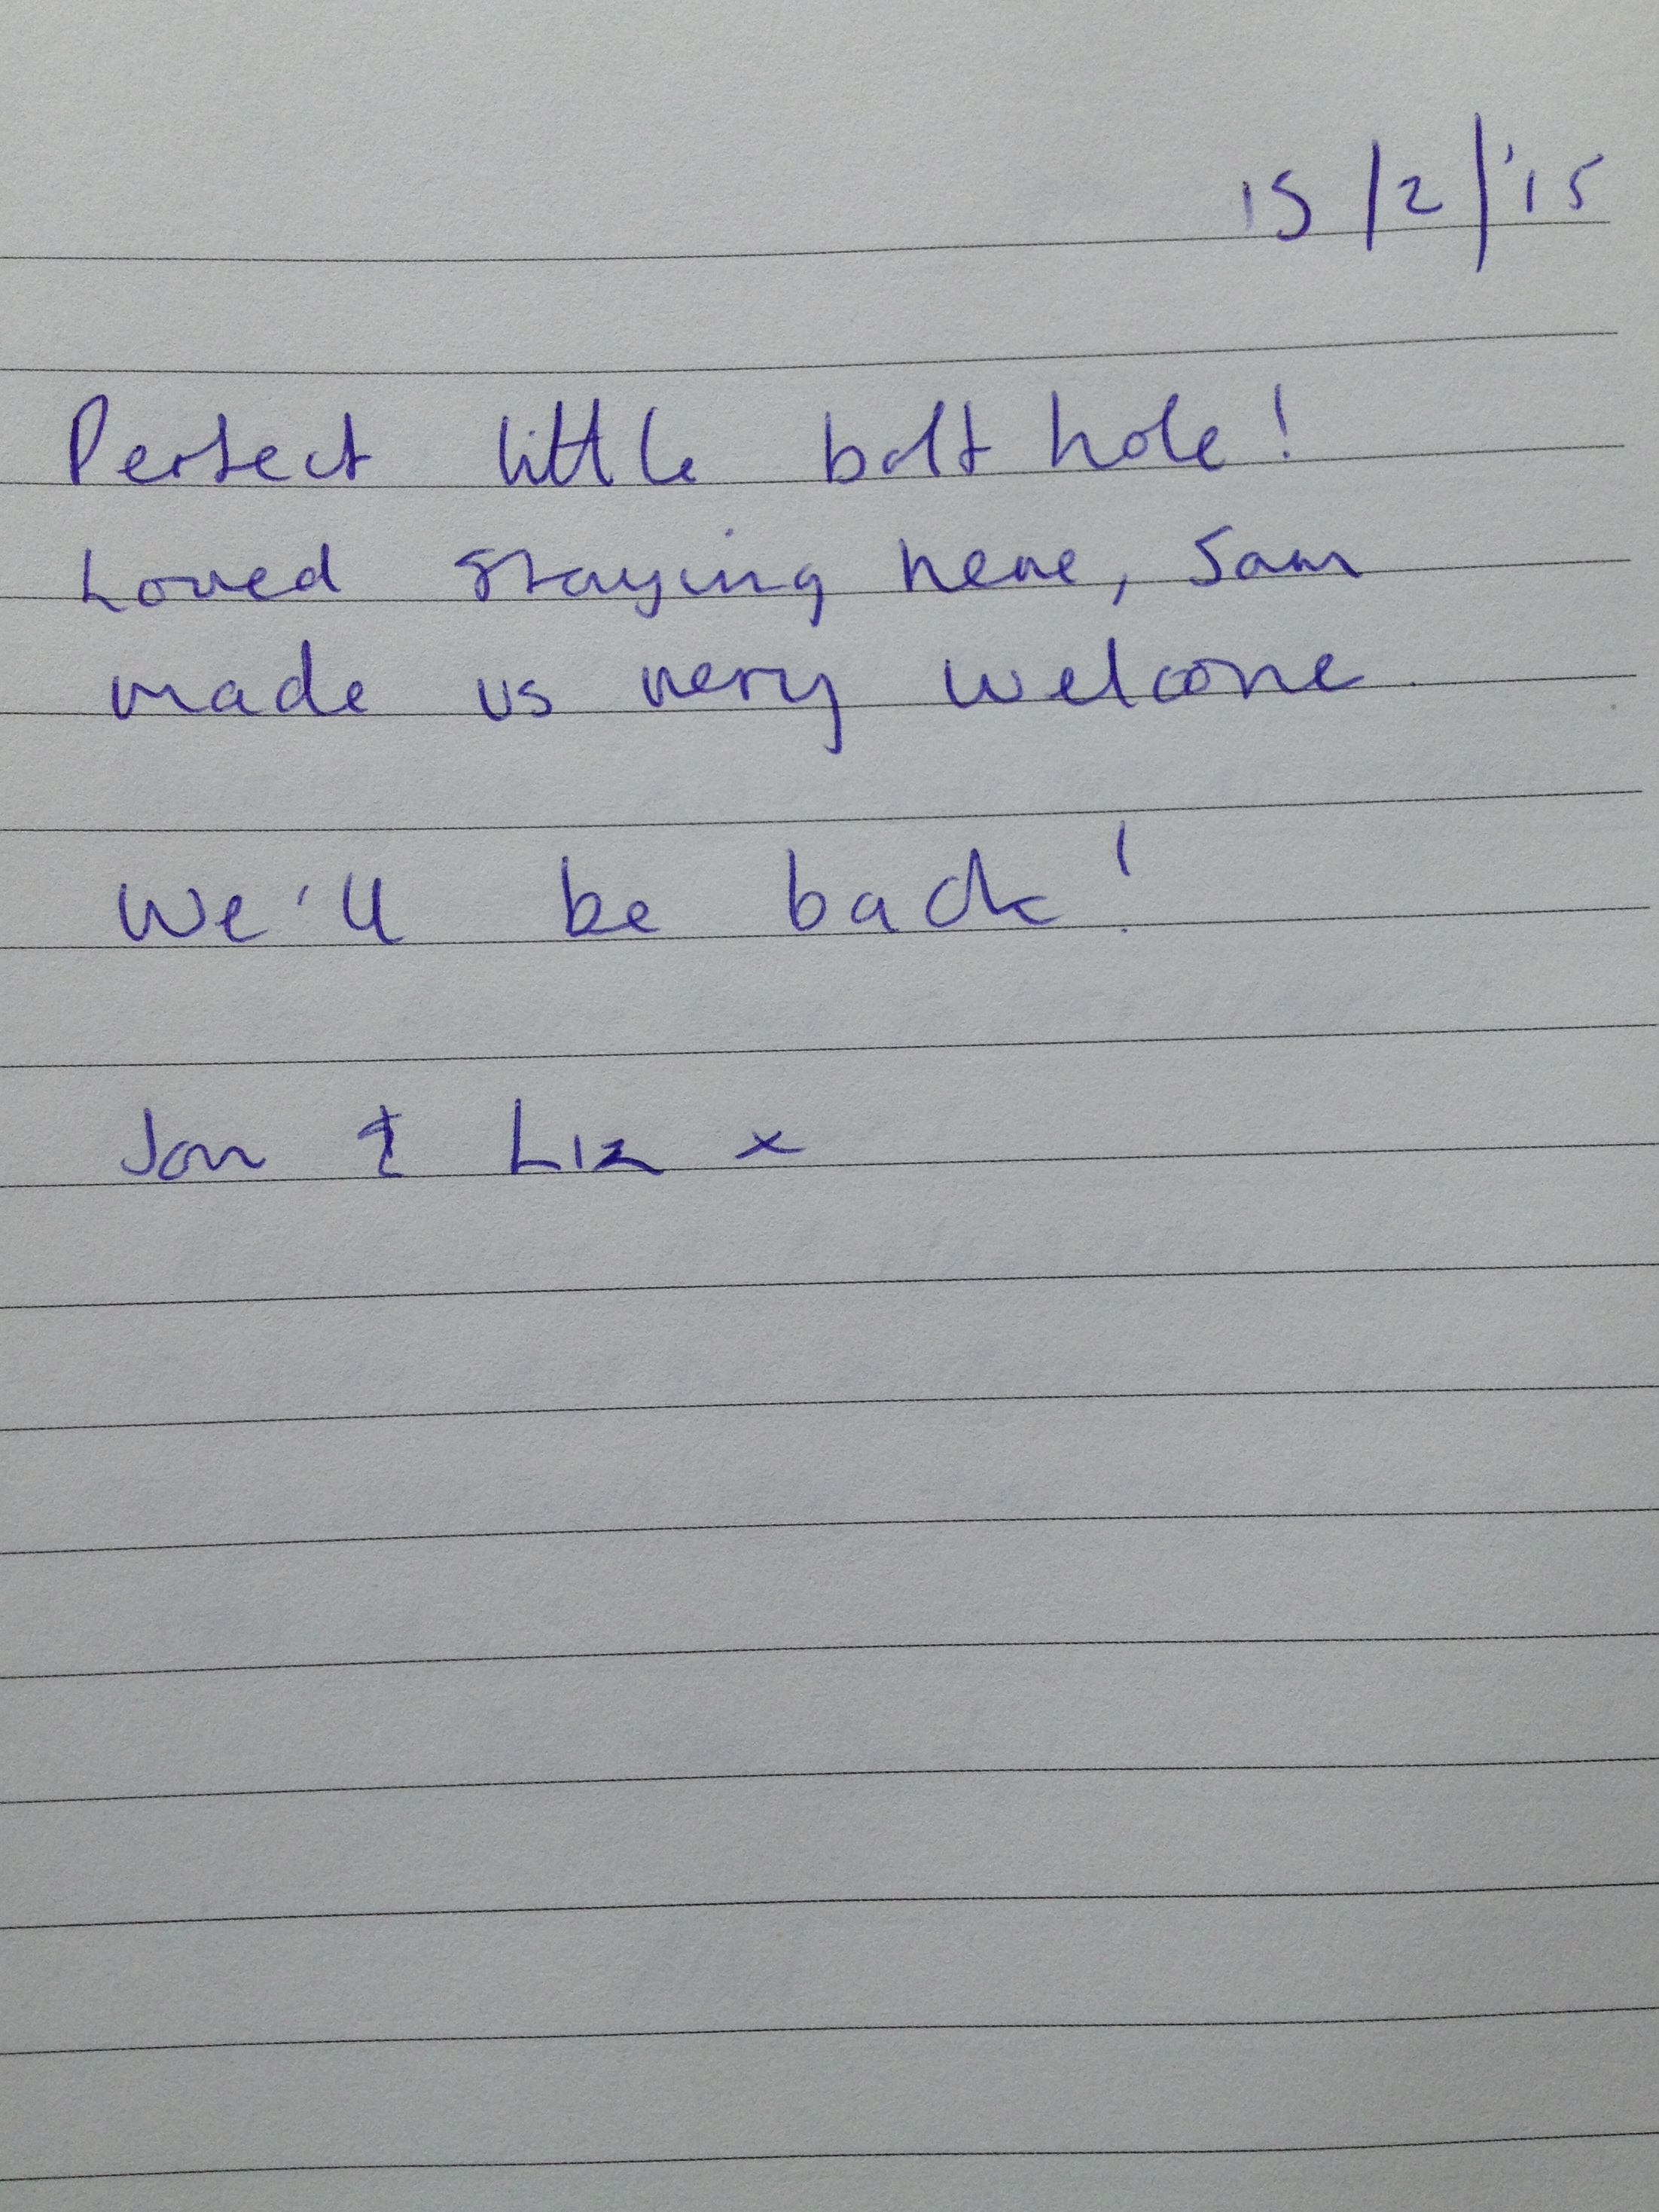 15/2/'15
Perfect little bolt hole!
Loved staying here, Sam
made us very welcome.
We'll be back!
Jon & Liz x